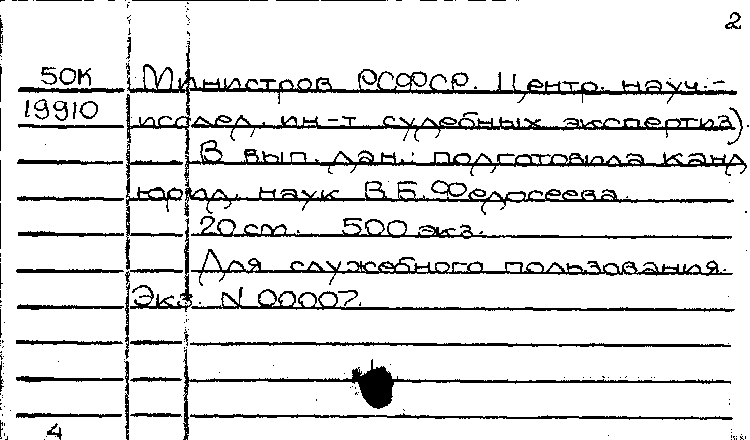 2
50К Министров РСФСР. Центр. науч.-
19910 исслед. ин-т судебных экспертиз).
В вып. дан.: подготовила канд
юрид. наук В.Б. Федосеева.
20 см. 500 экз.
Для служебного пользования.
Экз. N 00007.
4